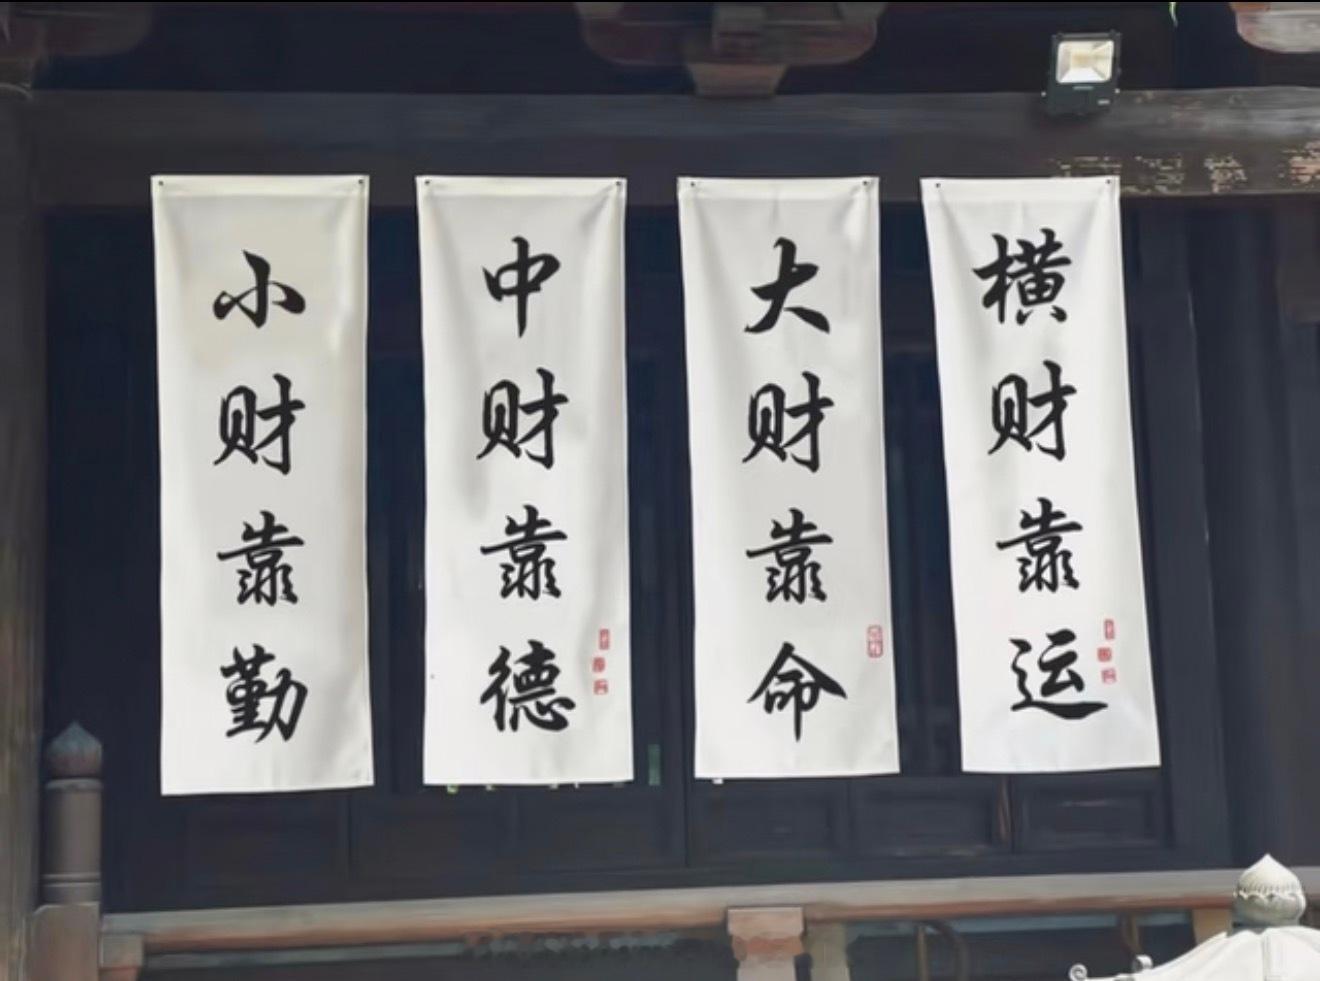 小财靠勤
中财靠德
大财靠命
横财靠运